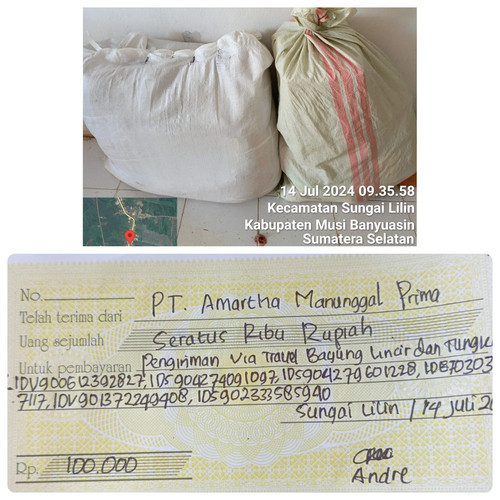 14 Jul 2024 09.35.58
Kecamatan Sungai Lilin
Kabupaten Musi Banyuasin
Sumatera Selatan
No.
Telah terima dari PT. Amartha Manunggal Prima
Uang sejumlah Seratus Ribu Rupiah
Untuk pembayaran Pengiriman Via Travel Bayung Lincir dan Tungk
IDV900612392827, IDS904274091097, IDS904279601228, ID870303
7117, IDV901372249408, IDS902333585940
Sungai Lilin / 14 Juli 20
Rp. 100.000
Andre